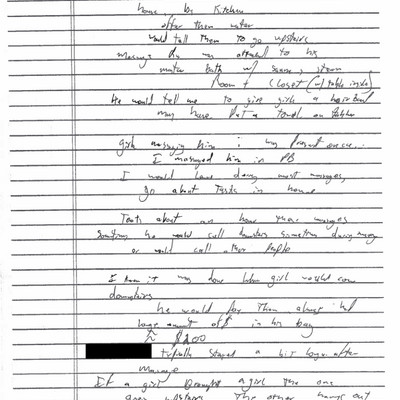 house, by Kitchen
offer them water
would tell them to go upstairs
massage rm my attached to his
master bath w/ sauna, steam
Room + closet (w/ table inside)
He would tell me to give girls a
may have put a towel on
girls massaging him in my presence
I massaged him in PB
I would leave during most massages,
Go about tasks in house
Took about an hour these massages
Sometimes he would call sometimes during massage
or would call other people
I knew it was hour when girl would come
downstairs
he would pay them always had
large amount of $ in his bag
$200
typically stayed a bit longer after
massage
If a girl brought a girl the one
goes upstairs the other hangs out